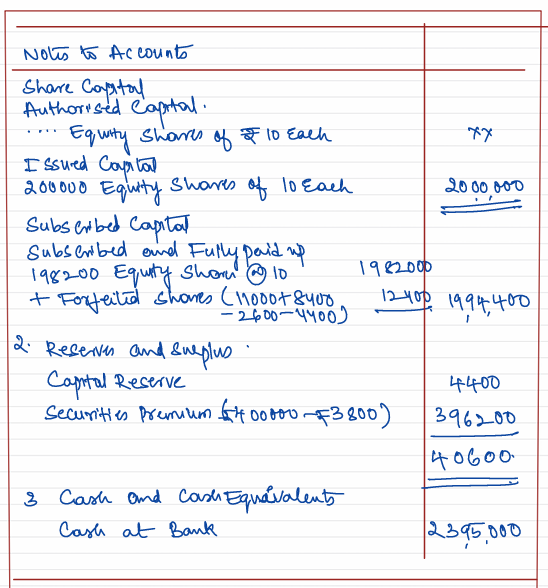 Notes to Accounts
Share Capital
Authorised Capital.
.... Equity Shares of ₹ 10 Each xx
Issued Capital
200000 Equity Shares of 10 Each 2000,000
Subscribed Capital
Subscribed and Fully paid up
198200 Equity Share @ 10 1982000
+ Forfeited Shares (11000+8400 12400 1994,400
-2600-4400)
2. Reserves and Surplus.
Capital Reserve 4400
Securities Premium (₹400000-₹3800) 396200
40600.
3 Cash and Cash Equivalents
Cash at Bank 2395,000